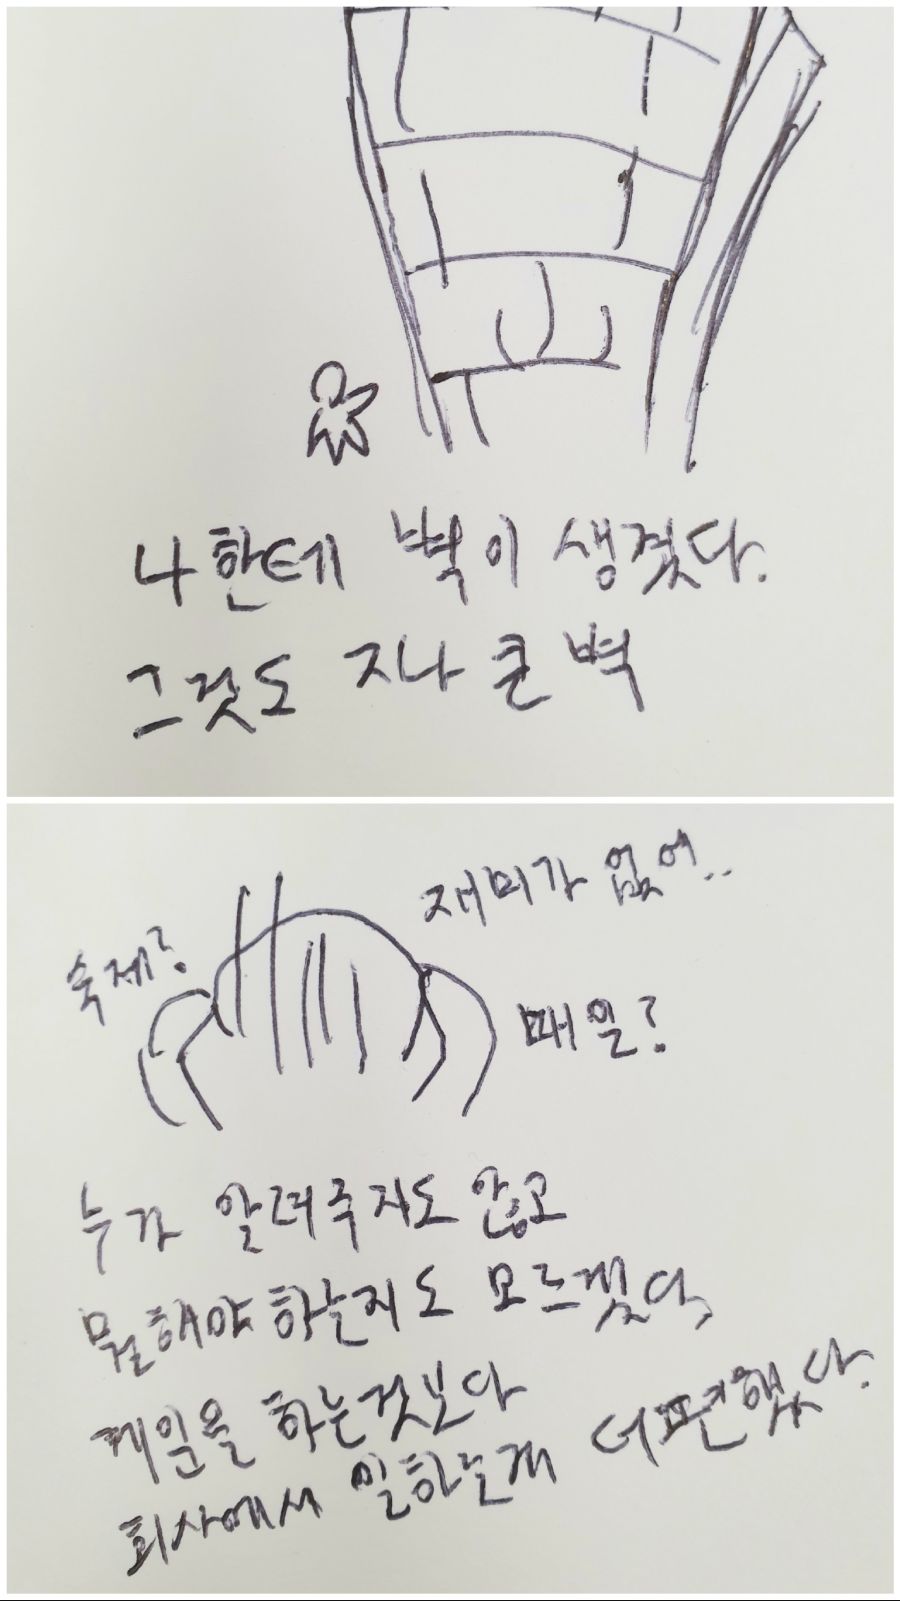 나한테 벽이 생겼다.
그것도 지나 큰 벽
재미가 없어..
숙제?
매일?
누가 알려주지도 않고
뭘해야 하는지도 모르겠다,
게임을 하는것보다
회사에서 일하는게 더편했다.